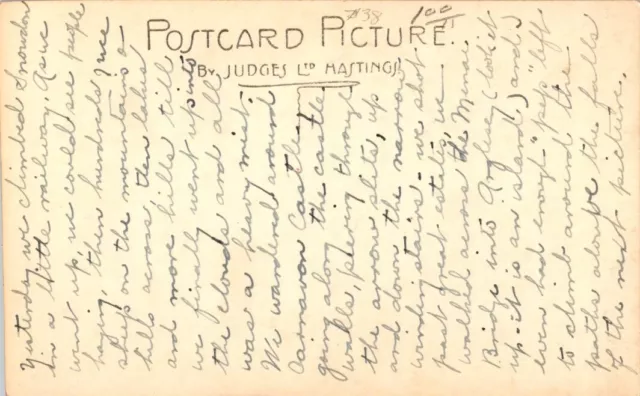 #38
1 00
POSTCARD PICTURE.
BY JUDGES LTD HASTINGS.
Yesterday we climbed Snowdon
in a little railway. As we
went up, we could see people
haying, then hundreds of
sheep on the mountains &
hills across, then lakes,
and more hills till
we finally went up into
the clouds and all
was a heavy mist.
We wandered around
Caernarvon Castle,
going along the castle
walls, peering through
the arrow slits, up
and down the narrow
winding stairs - we shot
past great estates, we
walked across the Menai
Bridge into Anglesey (look it
up - it is an island) and
even had enough "pep" left
to climb around the
paths above the falls
of the next picture.